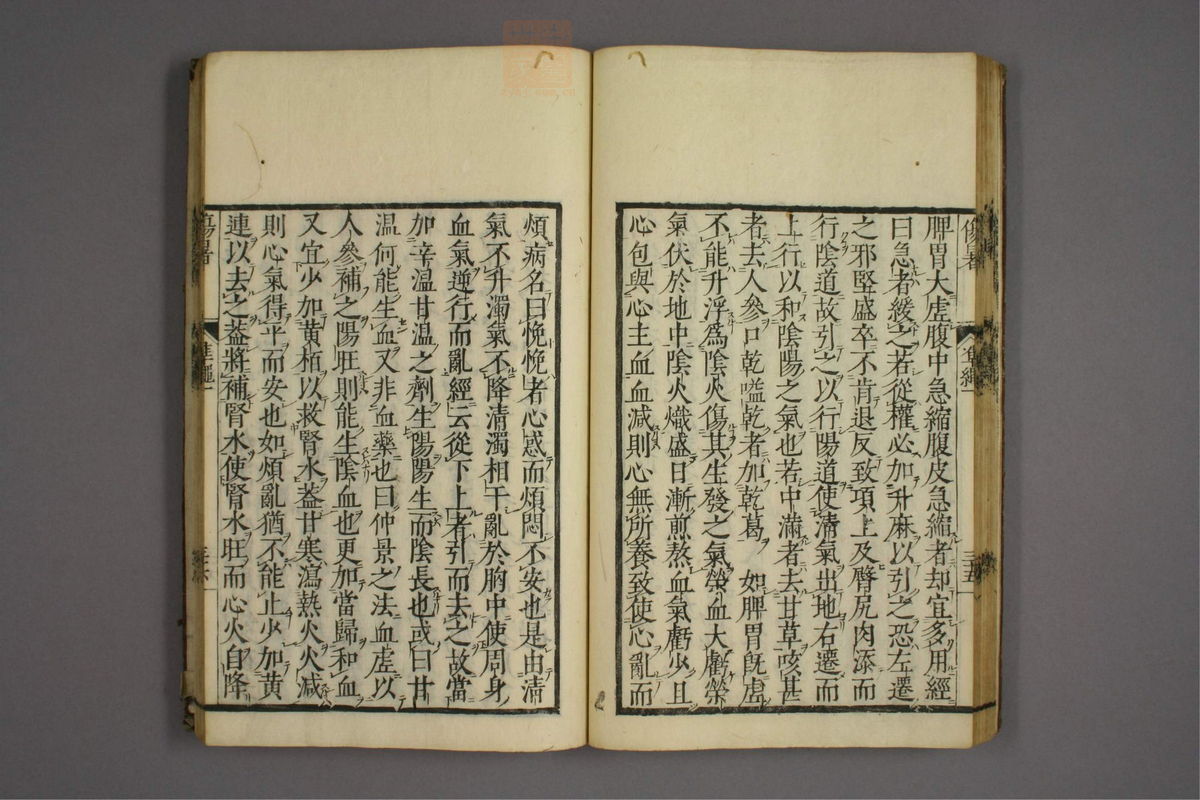 脾胃大虛腹中急縮腹皮急縮者却宜多用經
曰急者緩之若從權必加升麻以引之恐左遷
之邪堅盛卒不肯退反致項上及臀尻肉添而
行陰道故引之以行陽道使清氣出地右遷而
上行以和陰陽之氣也若中滿者去甘草咳甚
者去人參口乾嗌乾者加乾葛　如脾胃旣虛
不能升浮爲陰火傷其生發之氣榮血大虧榮
氣伏於地中陰火熾盛日漸煎熬血氣虧少且
心包與心主血血減則心無所養致使心亂而
煩病名曰悗悗者心惑而煩悶不安也是由清
氣不升濁氣不降清濁相干亂於胸中使周身
血氣逆行而亂經云從下上者引而去之故當
加辛温甘温之劑生陽陽生而陰長也或曰甘
温何能生血又非血藥也曰仲景之法血虛以
人參補之陽旺則能生陰血也更加當歸和血
又宜少加黄栢以救腎水葢甘寒瀉熱火火減
則心氣得平而安也如煩亂猶不能止少加黄
連以去之葢將補腎水使腎水旺而心火自降